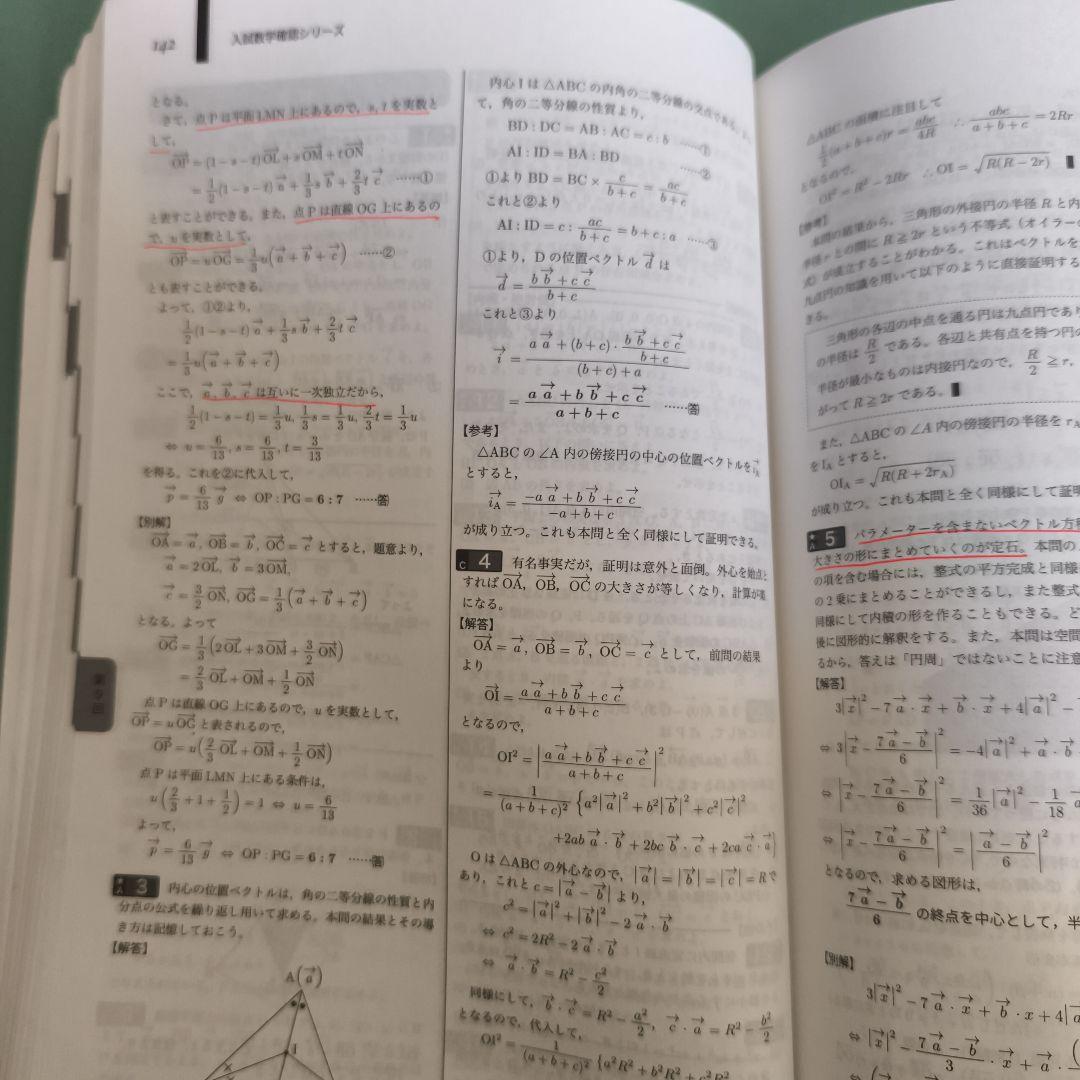 142
入試数学確認シリーズ
となる。
さて，点Pは平面LMN上にあるので，s, t を実数と
して，
$\overrightarrow{OP}=(1-s-t)\overrightarrow{OL}+s\overrightarrow{OM}+t\overrightarrow{ON}$
$=\frac{1}{2}(1-s-t)\vec{a}+\frac{1}{3}s\vec{b}+\frac{2}{3}t\vec{c}$ ……①
と表すことができる。また，点Pは直線OG上にあるの
で，u を実数として，
$\overrightarrow{OP}=u\overrightarrow{OG}=\frac{1}{3}u(\vec{a}+\vec{b}+\vec{c})$ ……②
とも表すことができる。
よって，①②より，
$\frac{1}{2}(1-s-t)\vec{a}+\frac{1}{3}s\vec{b}+\frac{2}{3}t\vec{c}$
$=\frac{1}{3}u(\vec{a}+\vec{b}+\vec{c})$
ここで，$\vec{a}, \vec{b}, \vec{c}$ は互いに一次独立だから，
$\frac{1}{2}(1-s-t)=\frac{1}{3}u, \frac{1}{3}s=\frac{1}{3}u, \frac{2}{3}t=\frac{1}{3}u$
$\Leftrightarrow u=\frac{6}{13}, s=\frac{6}{13}, t=\frac{3}{13}$
を得る。これを②に代入して，
$\vec{p}=\frac{6}{13}\vec{g}$ ⇔ OP : PG = 6 : 7 ……答
【別解】
$\overrightarrow{OA}=\vec{a}, \overrightarrow{OB}=\vec{b}, \overrightarrow{OC}=\vec{c}$ とすると，題意より，
$\vec{a}=2\overrightarrow{OL}, \vec{b}=3\overrightarrow{OM},$
$\vec{c}=\frac{3}{2}\overrightarrow{ON}, \overrightarrow{OG}=\frac{1}{3}(\vec{a}+\vec{b}+\vec{c})$
となる。よって
$\overrightarrow{OG}=\frac{1}{3}(2\overrightarrow{OL}+3\overrightarrow{OM}+\frac{3}{2}\overrightarrow{ON})$
$=\frac{2}{3}\overrightarrow{OL}+\overrightarrow{OM}+\frac{1}{2}\overrightarrow{ON}$
点Pは直線OG上にあるので，u を実数として，
$\overrightarrow{OP}=u\overrightarrow{OG}$ と表されるので，
$\overrightarrow{OP}=u(\frac{2}{3}\overrightarrow{OL}+\overrightarrow{OM}+\frac{1}{2}\overrightarrow{ON})$
点Pは平面LMN上にある条件は，
$u(\frac{2}{3}+1+\frac{1}{2})=1 \Leftrightarrow u=\frac{6}{13}$
よって，
$\vec{p}=\frac{6}{13}\vec{g}$ ⇔ OP : PG = 6 : 7 ……答
第9回
★A 3 内心の位置ベクトルは，角の二等分線の性質と内
分点の公式を繰り返し用いて求める。本問の結果とその導
き方は記憶しておこう。
【解答】
A($\vec{a}$)
I
内心Iは△ABCの内角の二等分線の交点である。よっ
て，角の二等分線の性質より，
BD : DC = AB : AC = c : b ……①
AI : ID = BA : BD ……②
①より BD = BC × $\frac{c}{b+c}=\frac{ac}{b+c}$
これと②より
AI : ID = c : $\frac{ac}{b+c}$ = b+c : a ……③
①より，Dの位置ベクトル $\vec{d}$ は
$\vec{d}=\frac{b\vec{b}+c\vec{c}}{b+c}$
これと③より
$\vec{i}=\frac{a\vec{a}+(b+c)\cdot\frac{b\vec{b}+c\vec{c}}{b+c}}{(b+c)+a}$
$=\frac{a\vec{a}+b\vec{b}+c\vec{c}}{a+b+c}$ ……答
【参考】
△ABCの∠A内の傍接円の中心の位置ベクトルを $\vec{i_A}$
とすると，
$\vec{i_A}=\frac{-a\vec{a}+b\vec{b}+c\vec{c}}{-a+b+c}$
が成り立つ。これも本問と全く同様にして証明できる。
C 4 有名事実だが，証明は意外と面倒。外心を始点と
すれば $\overrightarrow{OA}, \overrightarrow{OB}, \overrightarrow{OC}$ の大きさが等しくなり，計算が楽
になる。
【解答】
$\overrightarrow{OA}=\vec{a}, \overrightarrow{OB}=\vec{b}, \overrightarrow{OC}=\vec{c}$ として，前問の結果
より
$\overrightarrow{OI}=\frac{a\vec{a}+b\vec{b}+c\vec{c}}{a+b+c}$
となるので，
$OI^2=\left|\frac{a\vec{a}+b\vec{b}+c\vec{c}}{a+b+c}\right|^2$
$=\frac{1}{(a+b+c)^2}\{a^2|\vec{a}|^2+b^2|\vec{b}|^2+c^2|\vec{c}|^2$
$+2ab\vec{a}\cdot\vec{b}+2bc\vec{b}\cdot\vec{c}+2ca\vec{c}\cdot\vec{a}\}$
Oは△ABCの外心なので，$|\vec{a}|=|\vec{b}|=|\vec{c}|=R$ で
あり，これと $c=|\vec{a}-\vec{b}|$ より，
$c^2=|\vec{a}|^2+|\vec{b}|^2-2\vec{a}\cdot\vec{b}$
$\Leftrightarrow c^2=2R^2-2\vec{a}\cdot\vec{b}$
$\Leftrightarrow \vec{a}\cdot\vec{b}=R^2-\frac{c^2}{2}$
同様にして，$\vec{b}\cdot\vec{c}=R^2-\frac{a^2}{2}, \vec{c}\cdot\vec{a}=R^2-\frac{b^2}{2}$
となるので，代入して，
$OI^2=\frac{1}{(a+b+c)^2}\{a^2R^2+b^2R^2+c^2R^2$
△ABCの面積に注目して
$\frac{1}{2}(a+b+c)r=\frac{abc}{4R}$ ∴ $\frac{abc}{a+b+c}=2Rr$
となるので，
$OI^2=R^2-2Rr$ ∴ $OI=\sqrt{R(R-2r)}$ ■
【参考】
本問の結果から，三角形の外接円の半径Rと内
半径rとの間にR≧2rという不等式（オイラーの
式）が成立することがわかる。これはベクトルを
九点円の知識を用いて以下のように直接証明する
きる。
三角形の各辺の中点を通る円は九点円であり
の半径は $\frac{R}{2}$ である。各辺と共有点を持つ円の
半径が最小なものは内接円なので，$\frac{R}{2}$≧r，
がってR≧2rである。■
また，△ABCの∠A内の傍接円の半径を $r_A$
を $I_A$ とすると，
$OI_A=\sqrt{R(R+2r_A)}$
が成り立つ。これも本問と全く同様にして証明
★A 5 パラメーターを含まないベクトル方程
大きさの形にまとめていくのが定石。本問の
の項を含む場合には，整式の平方完成と同様
の2乗にまとめることができるし，また整式
同様にして内積の形を作ることもできる。ど
後に図形的に解釈をする。また，本問は空間
るから，答えは「円周」ではないことに注意
【解答】
$3|\vec{x}|^2-7\vec{a}\cdot\vec{x}+\vec{b}\cdot\vec{x}+4|\vec{a}|^2-$
$\Leftrightarrow 3\left|\vec{x}-\frac{7\vec{a}-\vec{b}}{6}\right|^2=-4|\vec{a}|^2+\vec{a}\cdot\vec{b}$
$\Leftrightarrow \left|\vec{x}-\frac{7\vec{a}-\vec{b}}{6}\right|^2=\frac{1}{36}|\vec{a}|^2-\frac{1}{18}\vec{a}$
$\Leftrightarrow \left|\vec{x}-\frac{7\vec{a}-\vec{b}}{6}\right|^2=\left|\frac{\vec{a}-\vec{b}}{6}\right|^2$
となるので，求める図形は，
$\frac{7\vec{a}-\vec{b}}{6}$ の終点を中心として，半
【別解】
$3|\vec{x}|^2-7\vec{a}\cdot\vec{x}+\vec{b}\cdot x+4|\vec{a}$
$\Leftrightarrow |\vec{x}|^2-\frac{7\vec{a}-\vec{b}}{3}\cdot\vec{x}+\vec{a}\cdot$